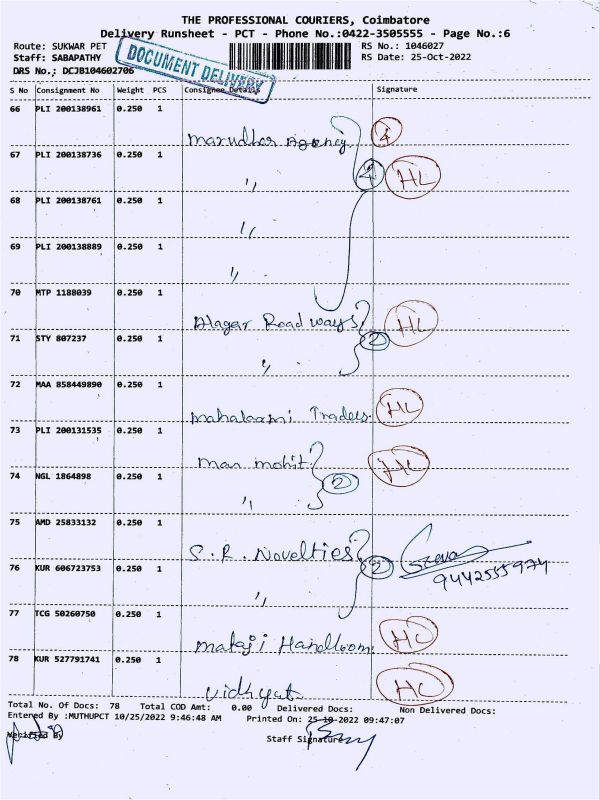 THE PROFESSIONAL COURIERS, Coimbatore
Delivery Runsheet - PCT - Phone No.:0422-3505555 - Page No.:6
Route: SUKWAR PET RS No.: 1046027
Staff: SABAPATHY RS Date: 25-Oct-2022
DRS No.: DCJB104602706
DOCUMENT DELIVERY
S No Consignment No Weight PCS Consignee Details Signature
66 PLI 200138961 0.250 1
Marudhar Agency 4
67 PLI 200138736 0.250 1
" 4 HL
68 PLI 200138761 0.250 1
"
69 PLI 200138889 0.250 1
"
70 MTP 1188039 0.250 1
Alagar Road ways HL
71 STY 807237 0.250 1 2
"
72 MAA 858449890 0.250 1
mahalaxmi Traders. HL
73 PLI 200131535 0.250 1
man mohit HL
74 NGL 1864898 0.250 1 2
"
75 AMD 25833132 0.250 1
S. R. Novelties
76 KUR 606723753 0.250 1 2 9442555974
"
77 TCG 50260750 0.250 1
mataji Handloom HL
78 KUR 527791741 0.250 1
HL
Total No. Of Docs: 78 Total COD Amt: 0.00 Delivered Docs: Non Delivered Docs:
Entered By :MUTHUPCT 10/25/2022 9:46:48 AM Printed On: 25-10-2022 09:47:07
Verified By Staff Signature